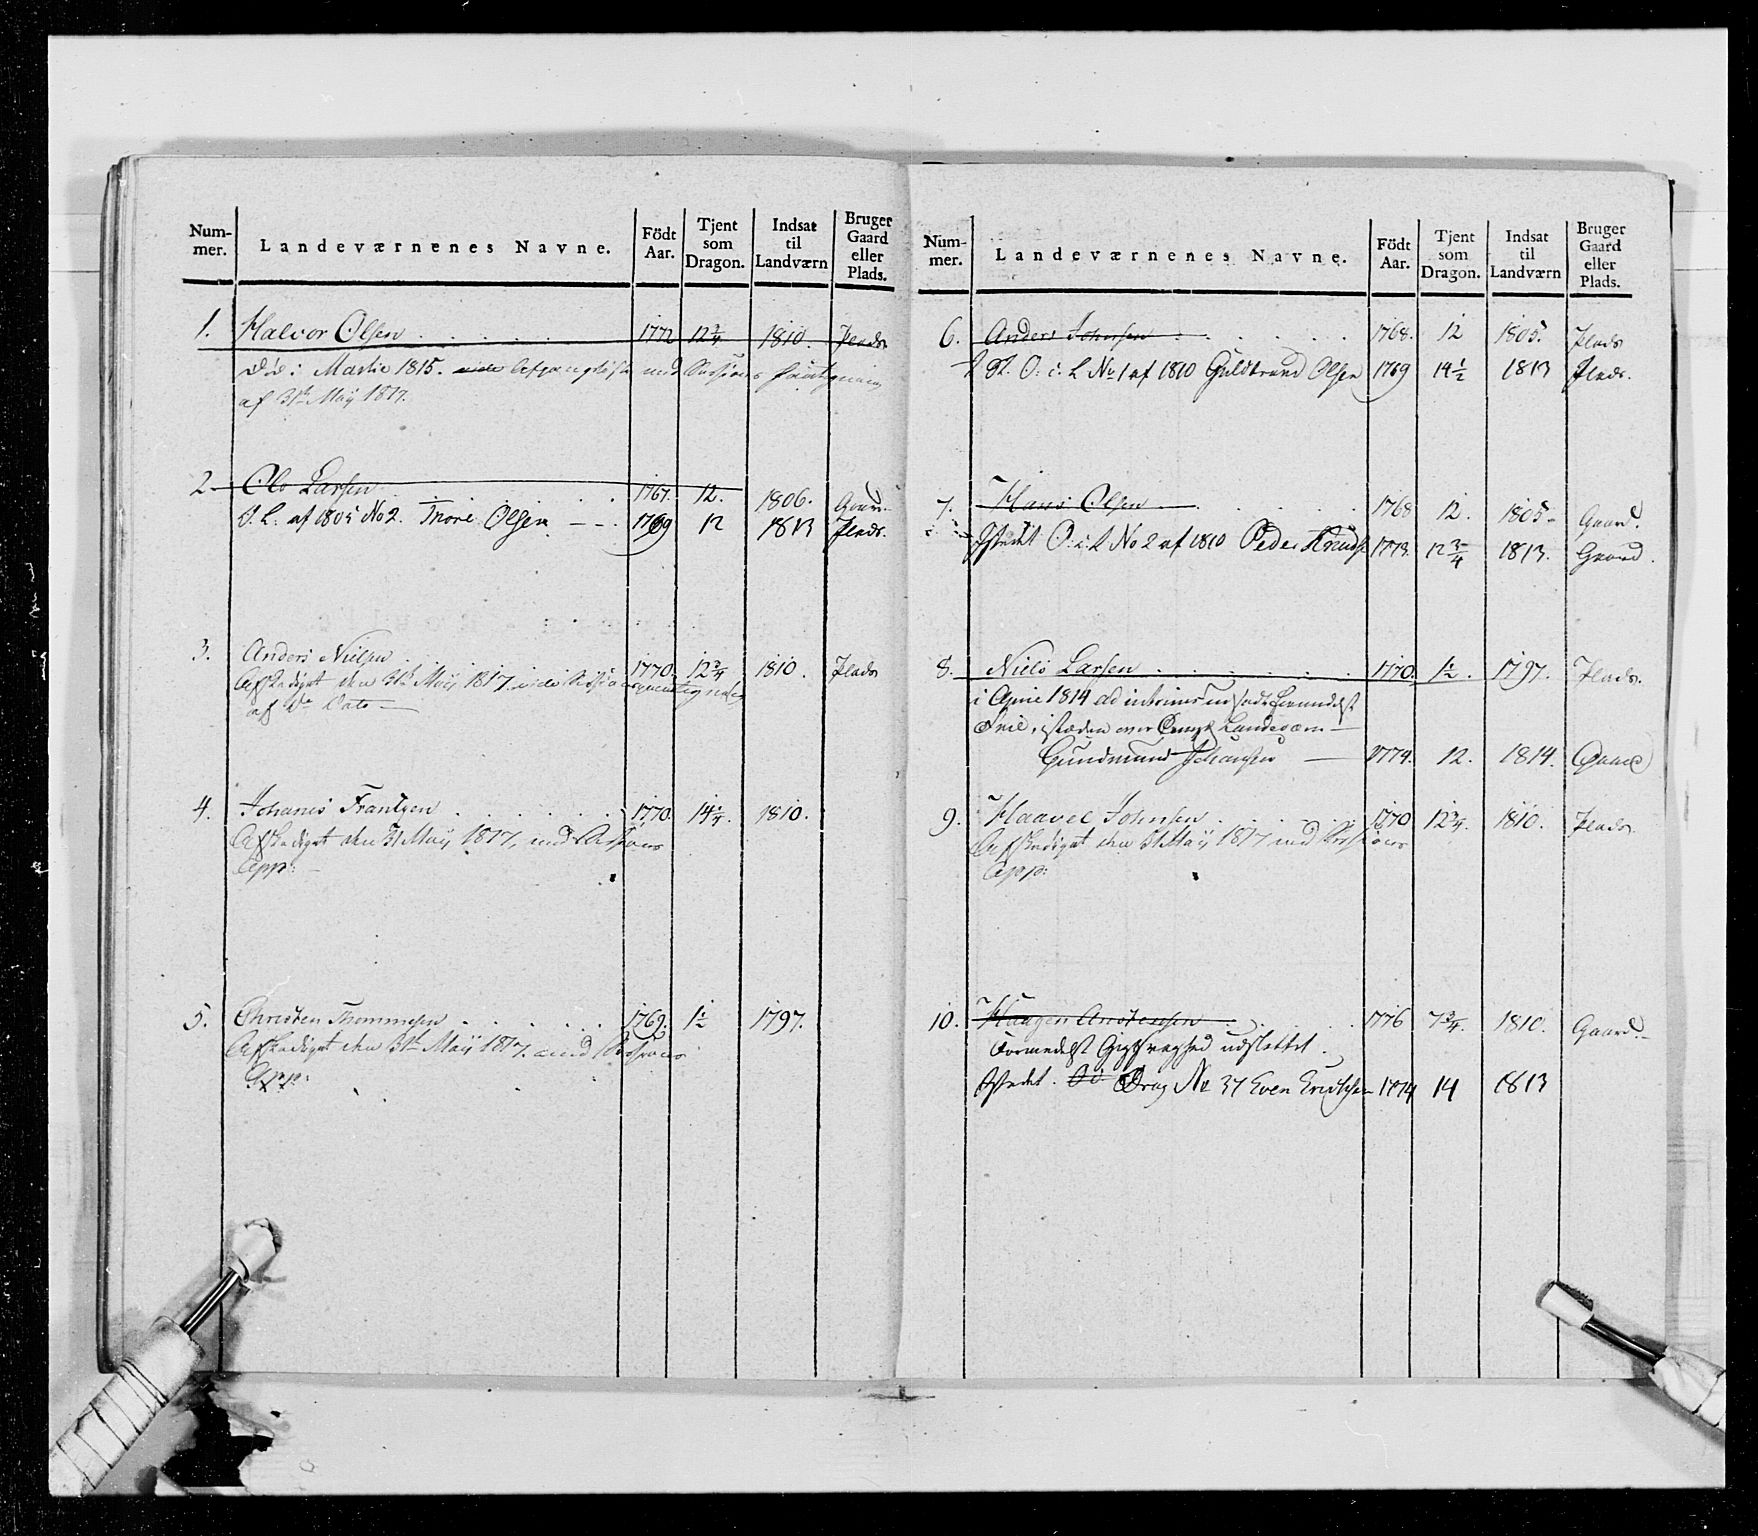 Num-
mer.
Landeværnenes Navne.
Födt
Aar.
Tjent
som
Dragon.
Indsat
til
Landværn
Bruger
Gaard
eller
Plads.
1. Halvor Olsen 1772 12 3/4 1810. Plads
Død i Martie 1815. med Sessions
af 31te Maij 1817.
2. Ole Larsen 1767. 12. 1806. Gaard.
I. L. af 1805 No 2. Thore Olsen 1769 12 1813 Plads.
3. Anders Nielsen 1770. 12 3/4 1810. Plads
Afskediget den 31te Maij 1817.
af Do Dato
4. Johanes Frantzen 1770. 14 3/4. 1810.
Afskediget den 31 Maij 1817, med Sessions
App:
5. Christen Thommesen 1769. 1 1/2 1797.
Afskediget den 31te Maij 1817. med Sessions
App:
Num-
mer.
Landeværnenes Navne.
Födt
Aar.
Tjent
som
Dragon.
Indsat
til
Landværn
Bruger
Gaard
eller
Plads.
6. Anders Johnsen 1768. 12 1805. Plads
I St. O: i: L No. 1 af 1810 Guldbrand Olsen 1769 14 1/2 1813 Plads.
7. Hans Olsen 1768 12. 1805 Gaard.
Istedet O: i: L No 2 af 1810 Peder Knuds 1773. 12 3/4 1813. Gaard.
8. Niels Larsen 1770. 1 1/2. 1797. Plads.
i 1814 ad interims
Landeværn
Gundmund Johansen 1774. 12. 1814. Gaard
9. Haavel Johnsen 1770 12 3/4. 1810. Plads.
Afskediget den 31 Maij 1817 med Sessions
App:
10. Haagen Andersen 1776 7 3/4. 1810. Gaard.
Formedelst Gigtsvaghed udslettet.
Istedet. Drag No 37 Even Erichsen 1774 14 1813